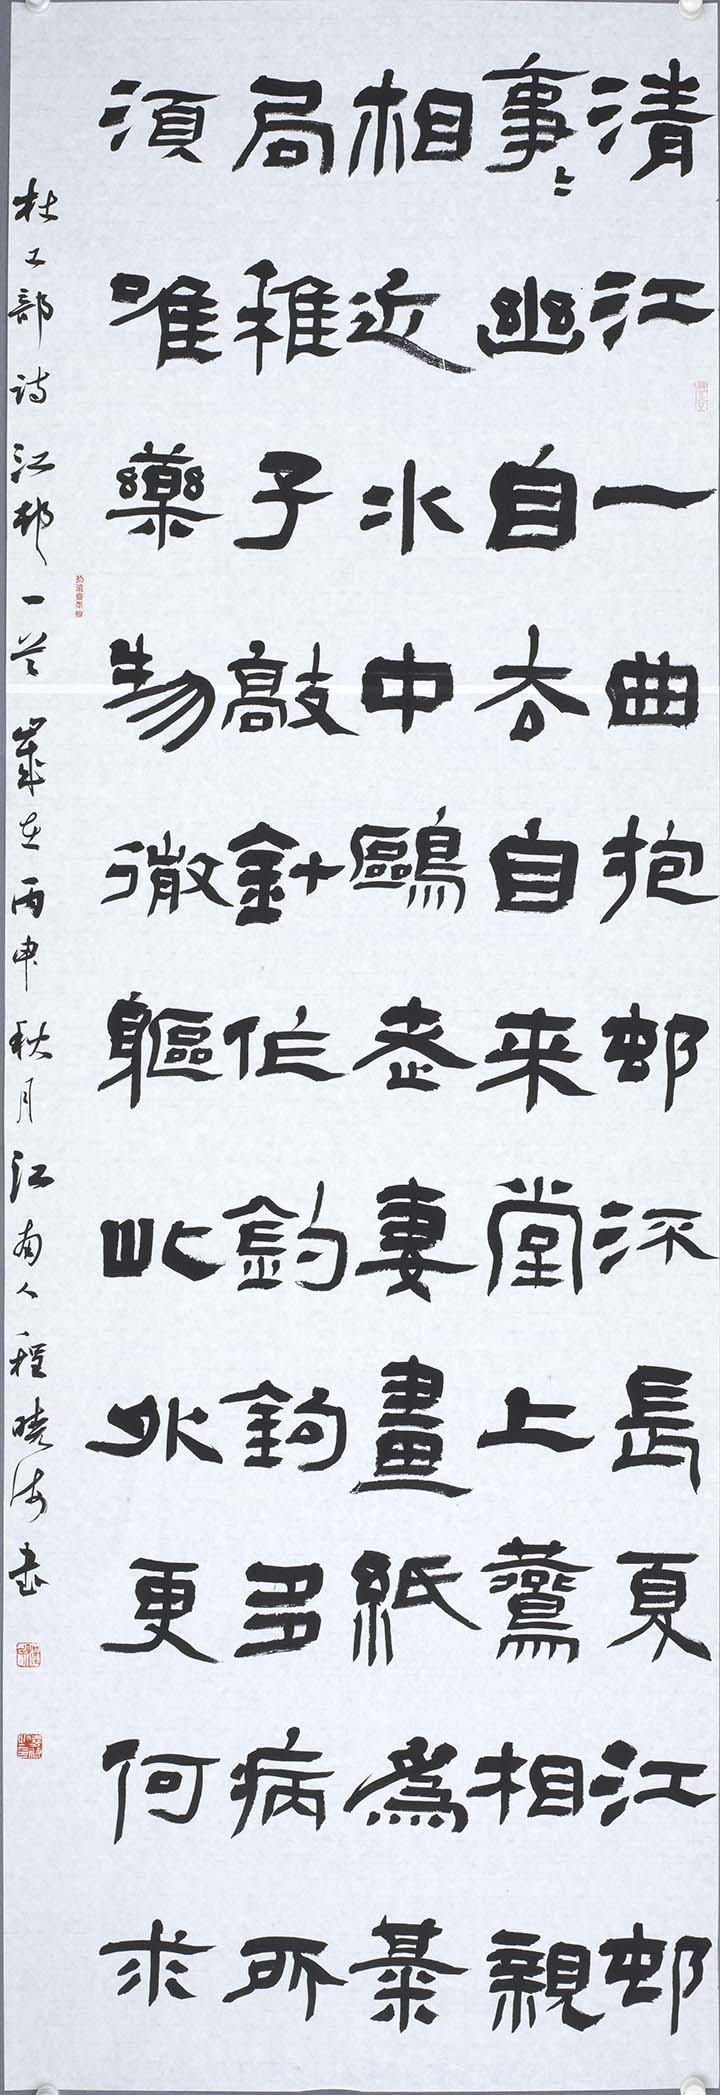 清江一曲抱邨㳅長夏江邨
事〻幽自去自來堂上鷰相親
相近水中鷗老妻畫紙爲棊
局稚子敲針作釣鉤多病所
須唯藥物微軀此外更何求
杜工部诗江邨一首歲在丙申秋月江南人程曉海書